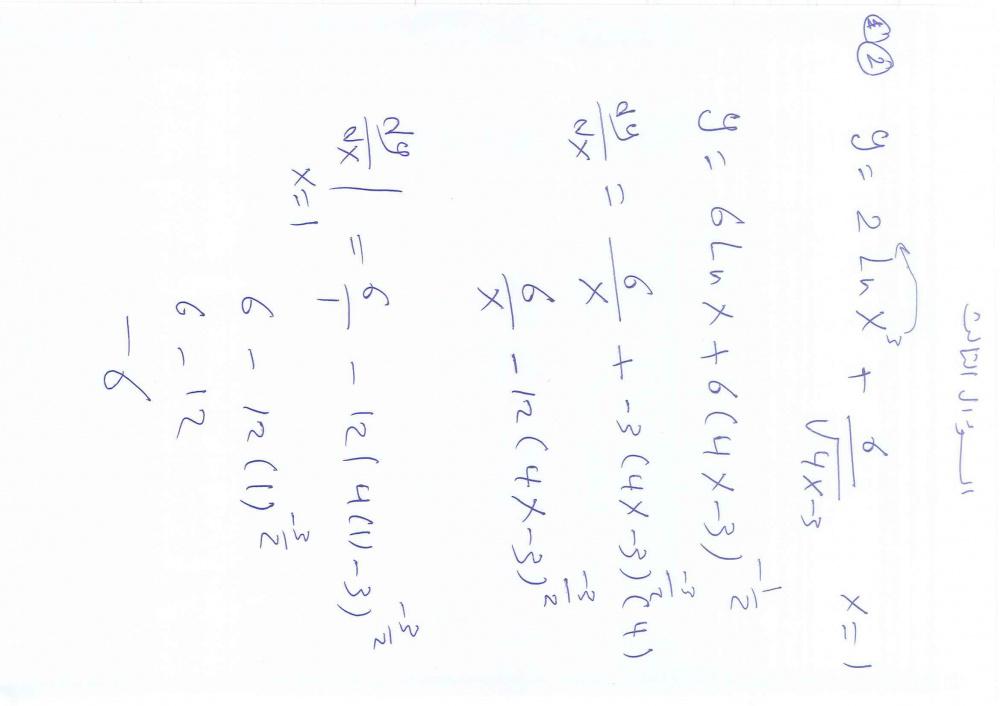 السؤال الثالث
② y = 2 ln x³ + 6/√(4x-3)    x = 1
y = 6 ln x + 6(4x-3)^(-1/2)
dy/dx = 6/x + -3(4x-3)^(-3/2) (4)
6/x - 12(4x-3)^(-3/2)
dy/dx | x=1 = 6/1 - 12(4(1)-3)^(-3/2)
6 - 12(1)^(-3/2)
6 - 12
-6